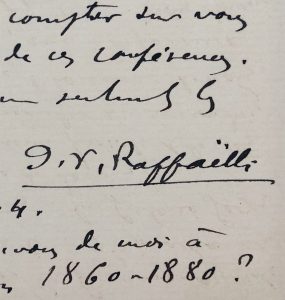 compter sur vous
de ces conférences.
seulement les
J. V. Raffaëlli
4.
vous de moi à
1860-1880 ?